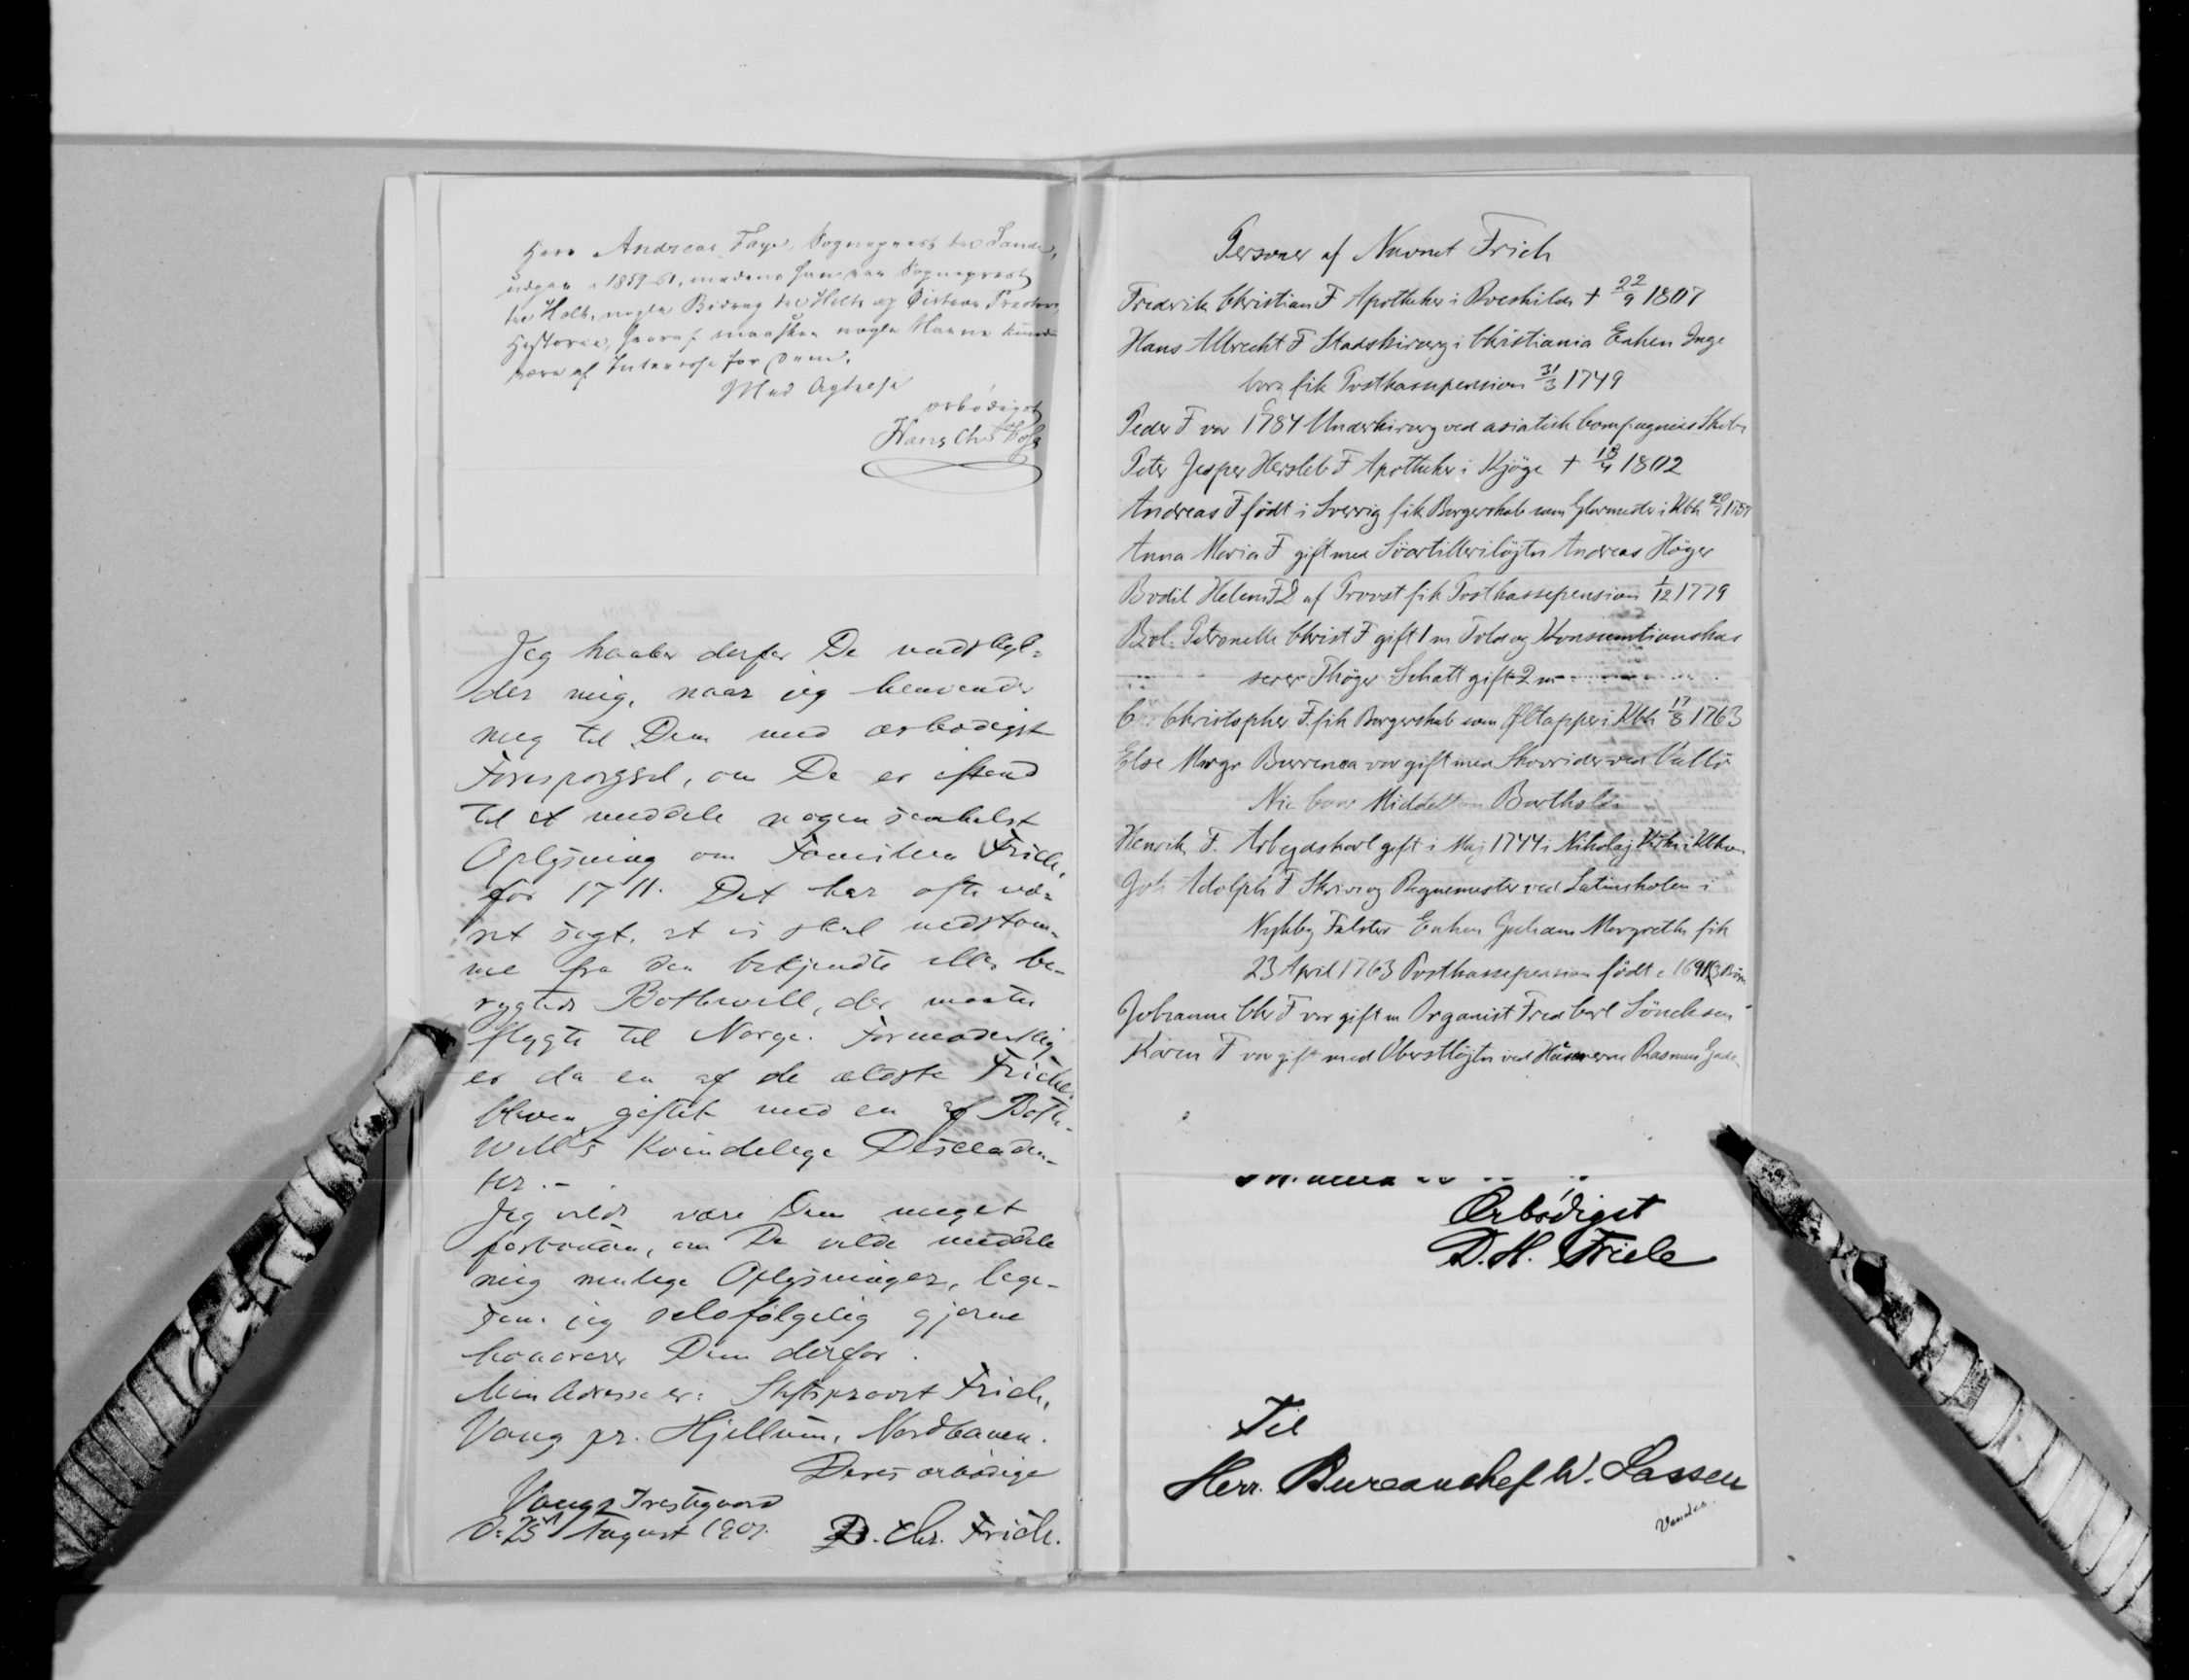 Herr Andreas Faye, Sogneprest til Sande,
udgav i 1859-61, medens han var Sogneprest
til Holt, nogle Bidrag til Holts og Distrikt
Historie, hvoraf maaskee nogle Navne kunde
være af Interesse for Dem.
Med Agtelse
ærbødigst
Hans Chr
Jeg haaber derfor De undskyl-
der mig, naar jeg henvender
mig til Dem med ærbødigst
Forespørgsel, om De er istand
til at meddele nogensomhelst
Oplysning om Familien Frich,
før 1711. Det har ofte væ-
ret sagt, at vi skal nedstam-
me fra den bekjendte eller be-
rygtede Bothwell, der maatte
flygte til Norge. Formodentlig
er da en af de ældste Fricher
bleven giftet med en af Both-
well's kvindelige Descenden-
ter.-
Jeg vilde være Dem meget
forbunden, om De vilde meddele
mig mulige Oplysninger, lige-
som jeg selvfølgelig gjerne
honorerer Dem derfor.
Min Adresse er: Stiftsprovst Frich,
Vang pr. Hjellum, Nordbanen.
Deres ærbødige
Vangs Prestegaard
d. 25 August 1901. D. Chr. Frich.
Personer af Navnet Frich
Frederik Christian F Apotheker i Roeskilde † 22/9 1807
Hans Albrecht F Stadskirurg i Christiania Enken Inge
borg fik Postkassepension 31/3 1749
Peder F var 1784 Underkirurg ved asiatisk Compagnies Skibe
Peter Jesper Hersleb F Apotheker i Kjöge † 18/4 1802
Andreas F født i Sverrig fik Borgerskab som Glarmester i Kbh 20/7
Anna Maria F gift med Söartillerilöjtn Andreas Höyer
Bodil Helene F D af Provst fik Postkassepension 1/12 1779
Bol. Petronelle Christ F gift 1 m Told og Konsumtionskas
serer Thöger Schatt gift 2 m
Christopher F. fik Borgerskab som Øltapper i Kbh 17/8 1763
Else Margr Burenca var gift med Skovrider ved Vallö
Nic Middel Barthold
Henrik F. Arbejdskarl gift i Maj 1744 i Nikolaj Kirke i Kbhvn
Joh Adolph F Skriver og Regnemester ved Latinskolen i
Nykbg Falster Enken Juliane Margrethe fik
23 April 1763 Postkassepension født c 1691 3 Börn
Johanne Chr F var gift m Organist Fred Carl Sönchsen
Karen F var gift med Oberstlöjtn ved Husarerne Rasmus Gade
Ærbödigst
D. H. Friele
Til
Herr. Bureauchef W. Lassen
Vendes.